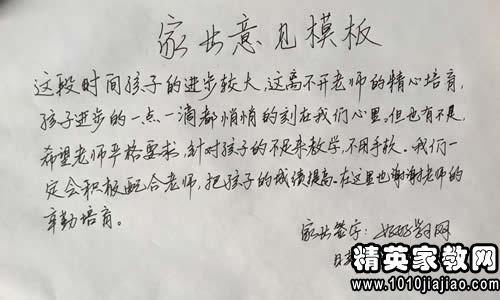 家长意见模板
这段时间孩子的进步较大，这离不开老师的精心培育，
孩子进步的一点一滴都悄悄的刻在我们心里。但也有不足，
希望老师严格要求，针对孩子的不足来教学，不用手软。我们一
定会积极配合老师，把孩子的成绩提高。在这里也谢谢老师的
辛勤培育。
家长签字：好好学习网
日
精英家教网
www.1010jiajiao.com